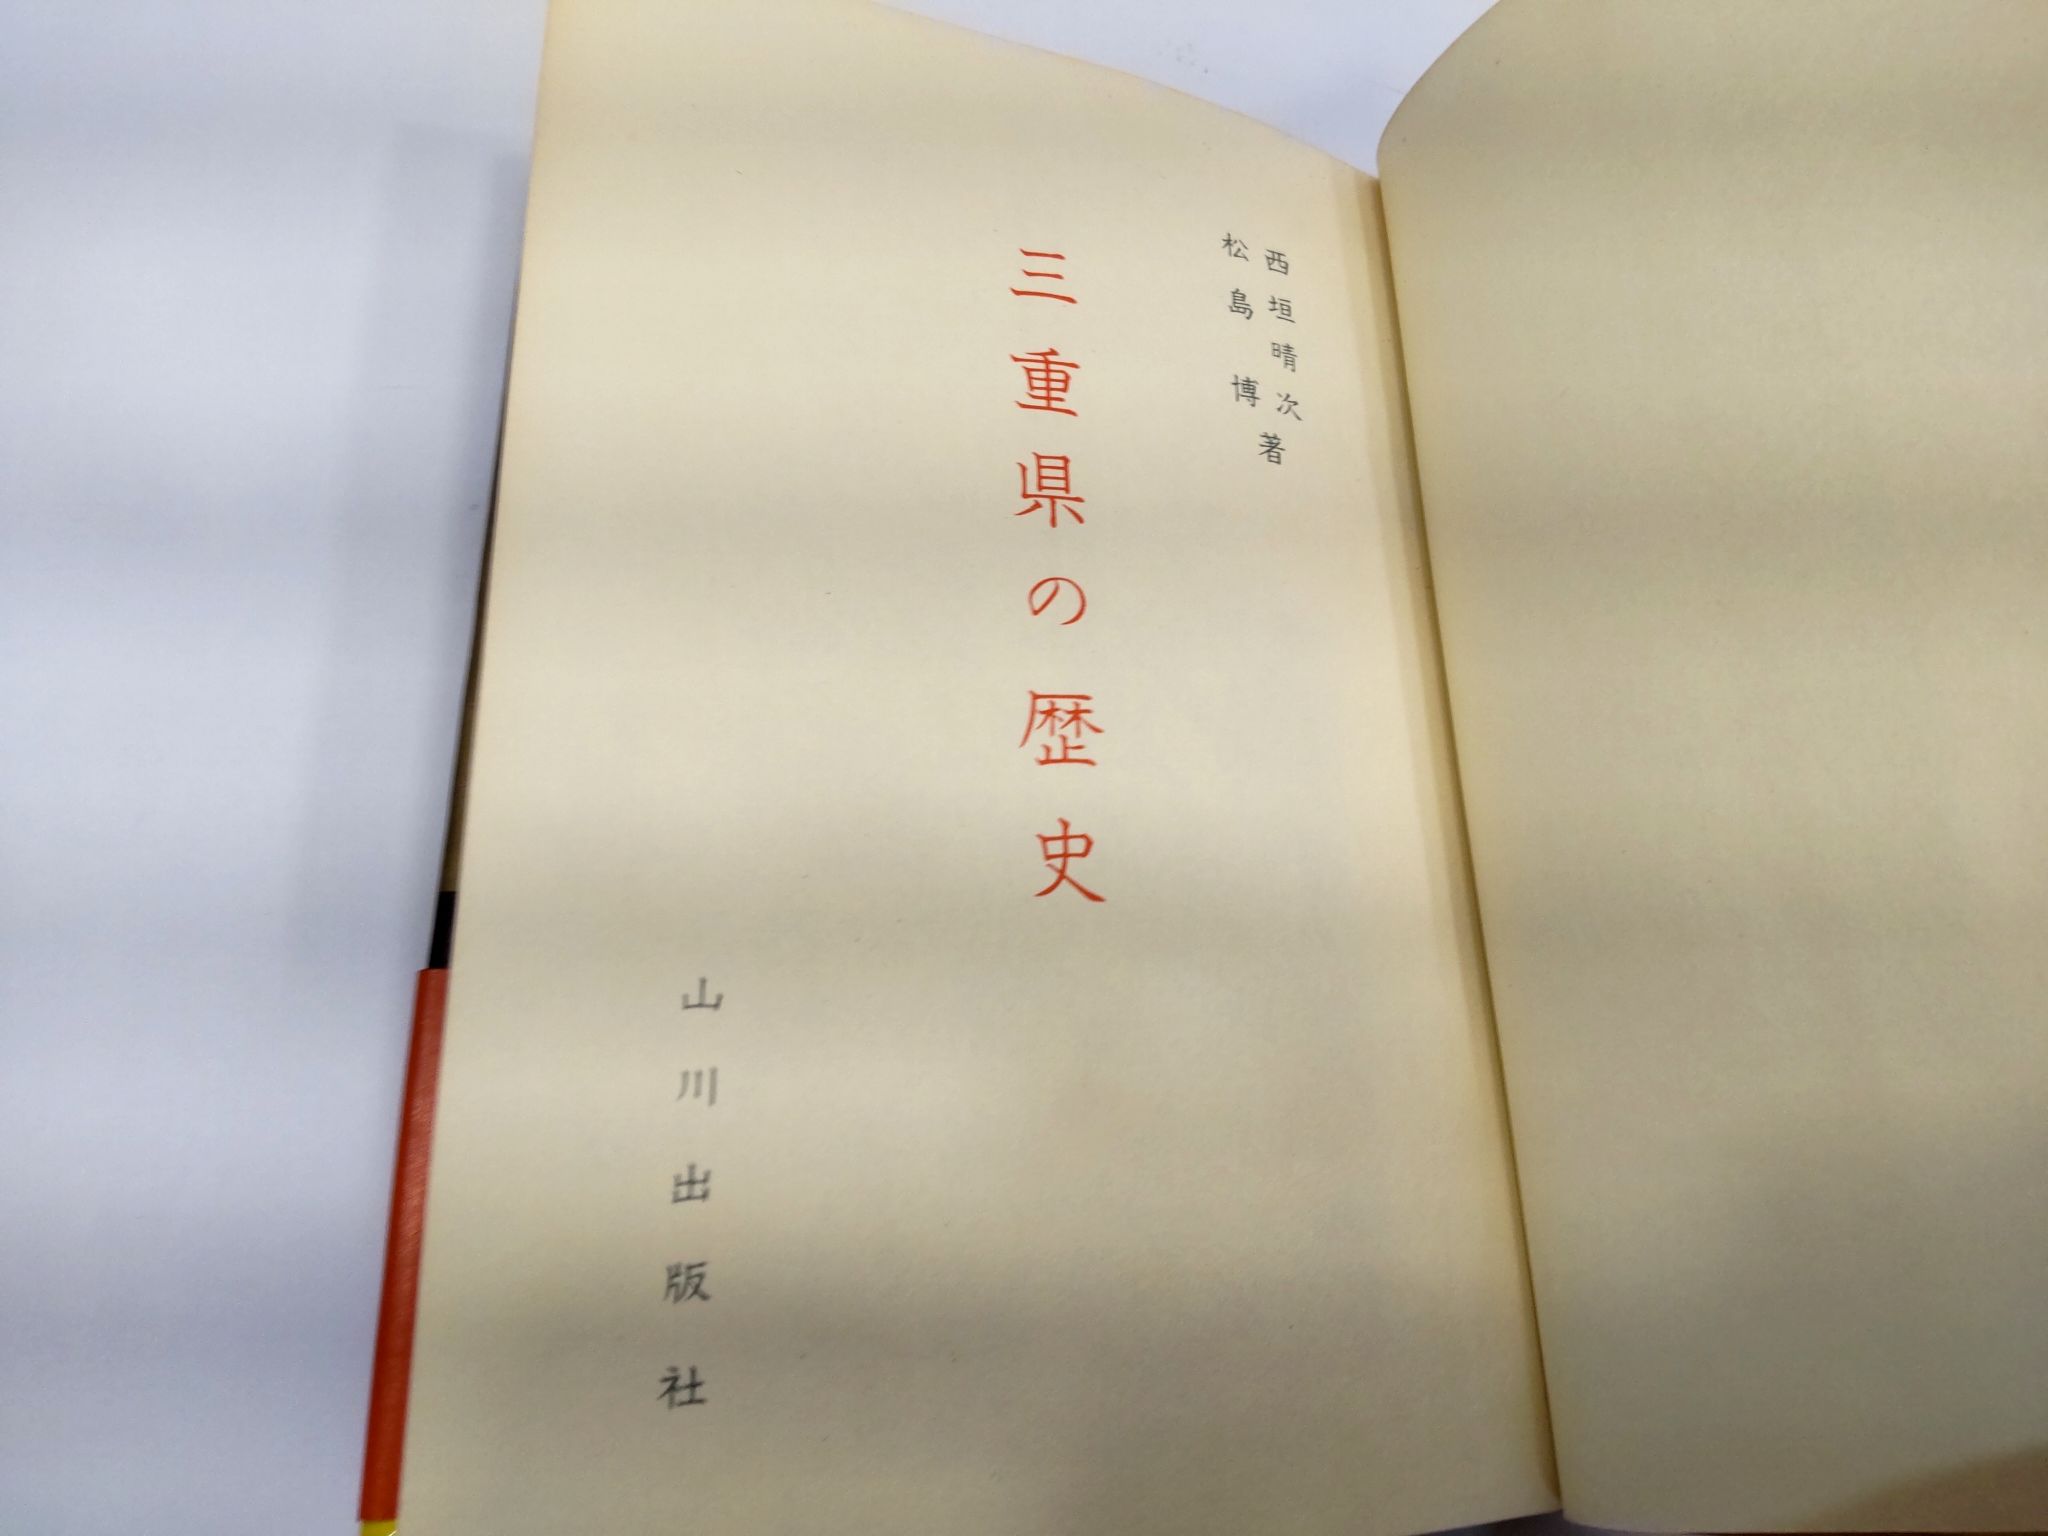 西垣晴次
松島博
著
三重県の歴史
山川出版社